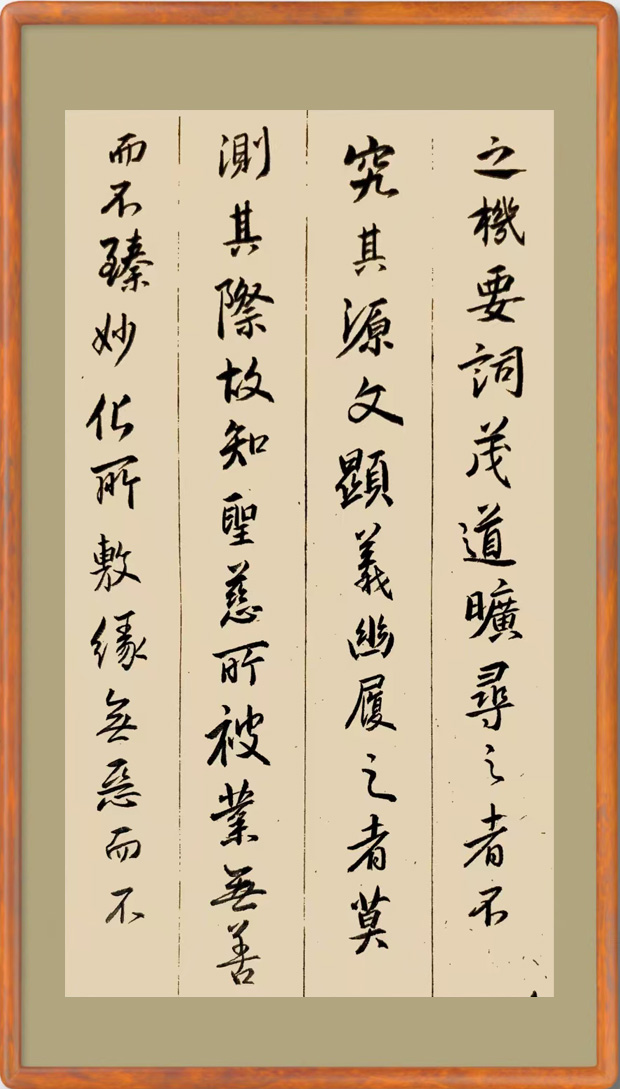 之機要詞茂道曠尋之者不
究其源文顯義幽履之者莫
測其際故知聖慈所被業無善
而不臻妙化所敷緣無惡而不